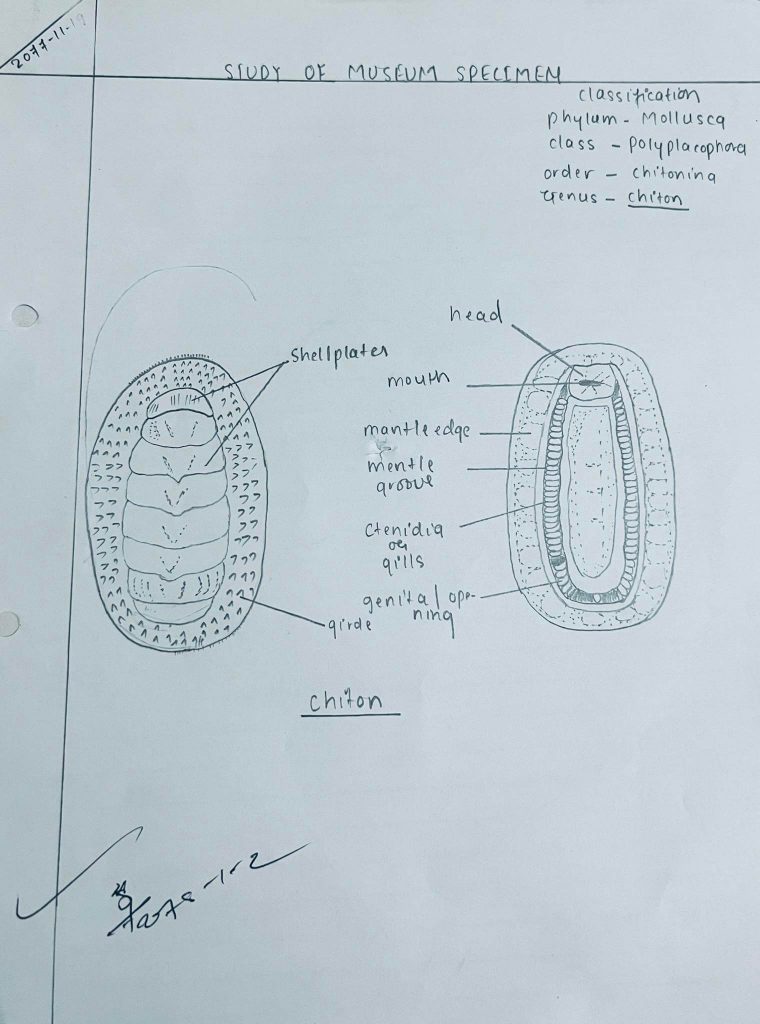 2077-11-19
STUDY OF MUSEUM SPECIMEN
classification
phylum - Mollusca
class - polyplacophora
order - chitonina
Genus - chiton
head
shellplates
mouth
mantle edge
mentle
groove
Ctenidia
or
gills
genital ope-
ning
girde
chiton